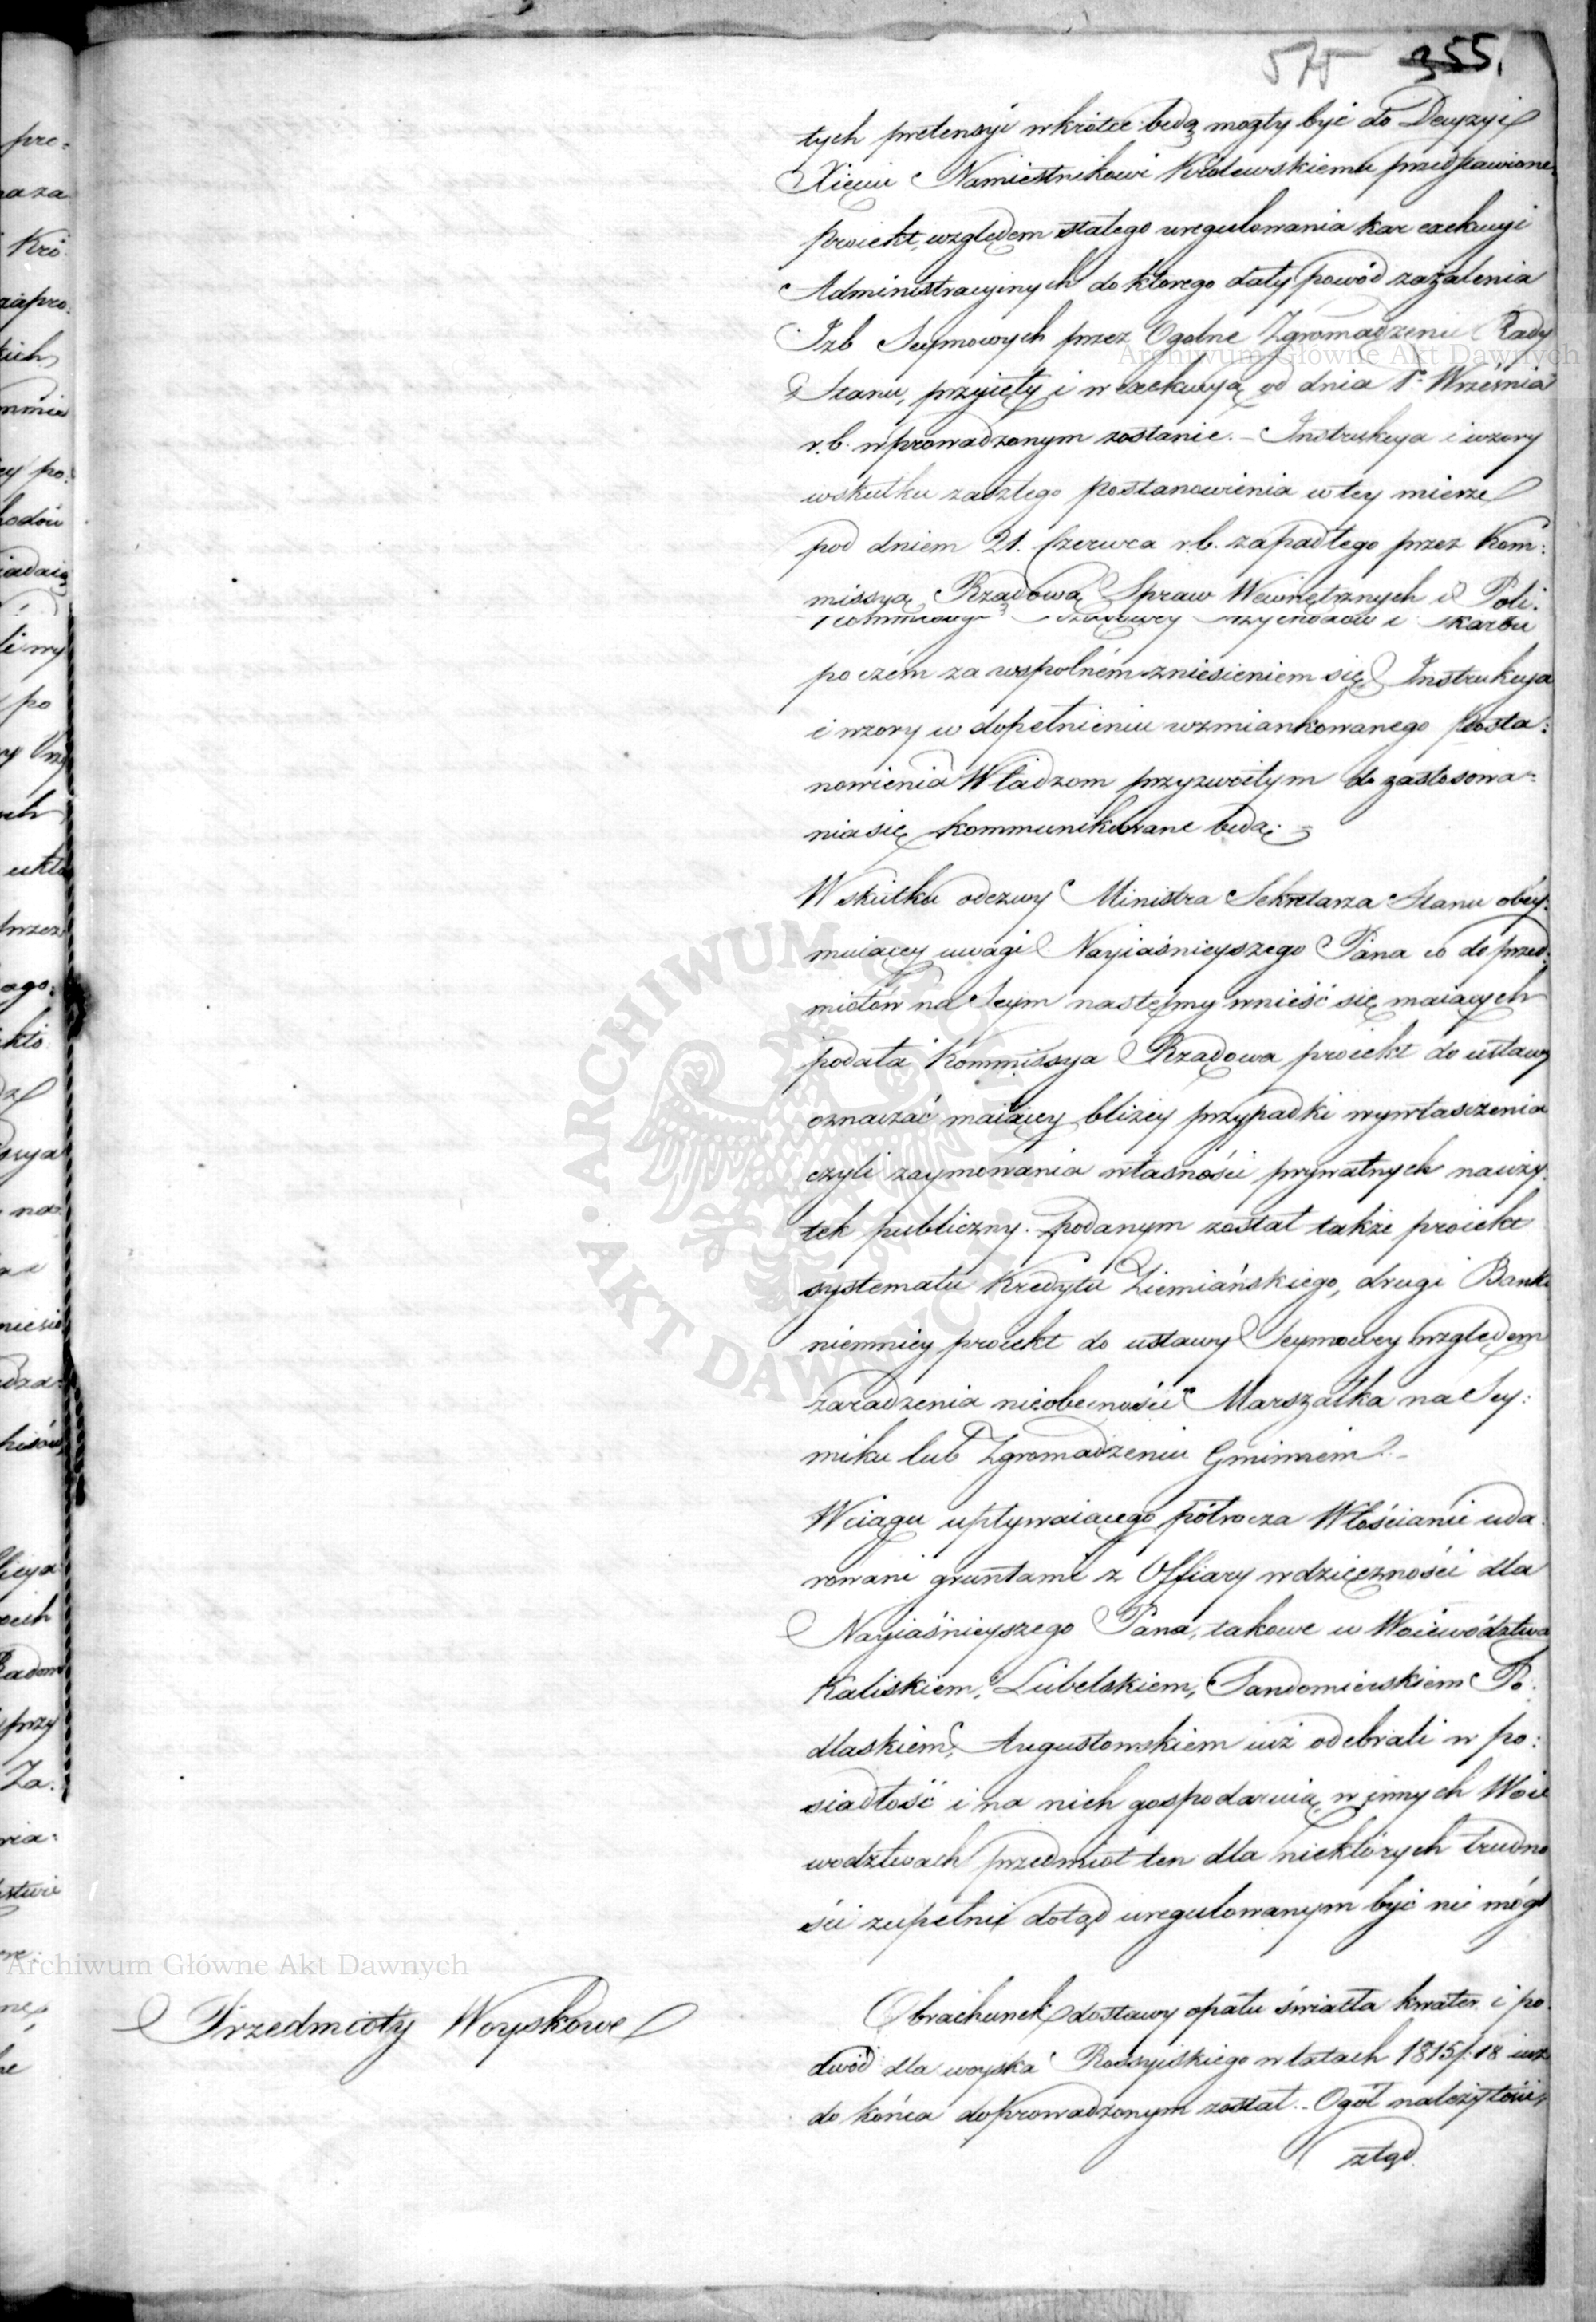 575 355.
tych pretensyi wkrótce będą mogły być do Decyzyi
Xięciu Namiestnikowi Królewskiemu przedstawione
Proiekt, względem stałego uregulowania kar exekucyi
Administracyinych do ktorego dały powód zażalenia
Izb Seymowych przez Ogolne Zgromadzenie Rady
Stanu, przyięty i w exekucyą od dnia 1º Września
r.b. wprowadzonym zostanie. – Instrukcya i wzory
wskutku zaszłego postanowienia w tey mierze
pod dniem 21. Czerwca r.b. zapadłego przez Kom:
missyą Rządową Spraw Wewnętrznych i Poli:
Kommissyi Rządowey Przychodów i Skarbu
poczém za wspolném zniesieniem się Instrukcya
i wzory w dopełnieniu wzmiankowanego Posta:
nowienia Władzom przyzwoitym do zastosowa:
nia się kommunikowane będą. –
W skutku odezwy Ministra Sekretarza Stanu obey:
muiącey uwagi Nayiaśnieyszego Pana co do przed:
miotów na Seym następny wnieść się maiących
podała Kommissya Rządowa proiekt do ustawy
oznaczać maiącey bliżey przypadki wywłaszczenia
czyli zaymowania własności prywatnych na uży:
tek publiczny. – podanym został także proiekt
systematu Kredytu Ziemiańskiego, drugi Banku
niemniey proiekt do ustawy Seymowey względem
zaradzenia nieobecności Marszałka na Sey:
miku lub Zgromadzeniu Gminnem. –
W ciągu upływaiącego półrocza Włościanie uda:
rowani gruntami z Offiary wdzięczności dla
Nayiaśnieyszego Pana, takowe w Woiewództwa
Kaliskiem, Lubelskiem, Sandomierskiem Po:
dlaskiem, Augustowskiem iuż odebrali w po:
siadłość i na nich gospodaruią, w innych Woie
wodztwach przedmiot ten dla niektórych trudno
ści zupełnie dotąd uregulowanym być nie mógł
Przedmioty Woyskowe
Obrachunek dostawy opału światła kwater i po
dwód dla woyska Rossyiskiego w latach 1815/18 iuż
do końca doprowadzonym został. – Ogół należytości,
ztąd
Archiwum Główne Akt Dawnych
Archiwum Główne Akt Dawnych
ARCHIWUM GŁÓWNE · AKT DAWNYCH ·